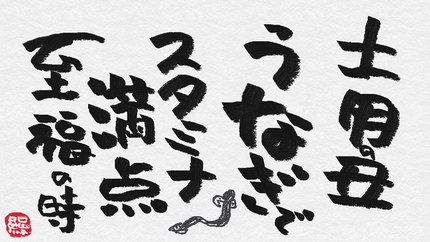 土用の丑
うなぎで
スタミナ
満点
至福の時